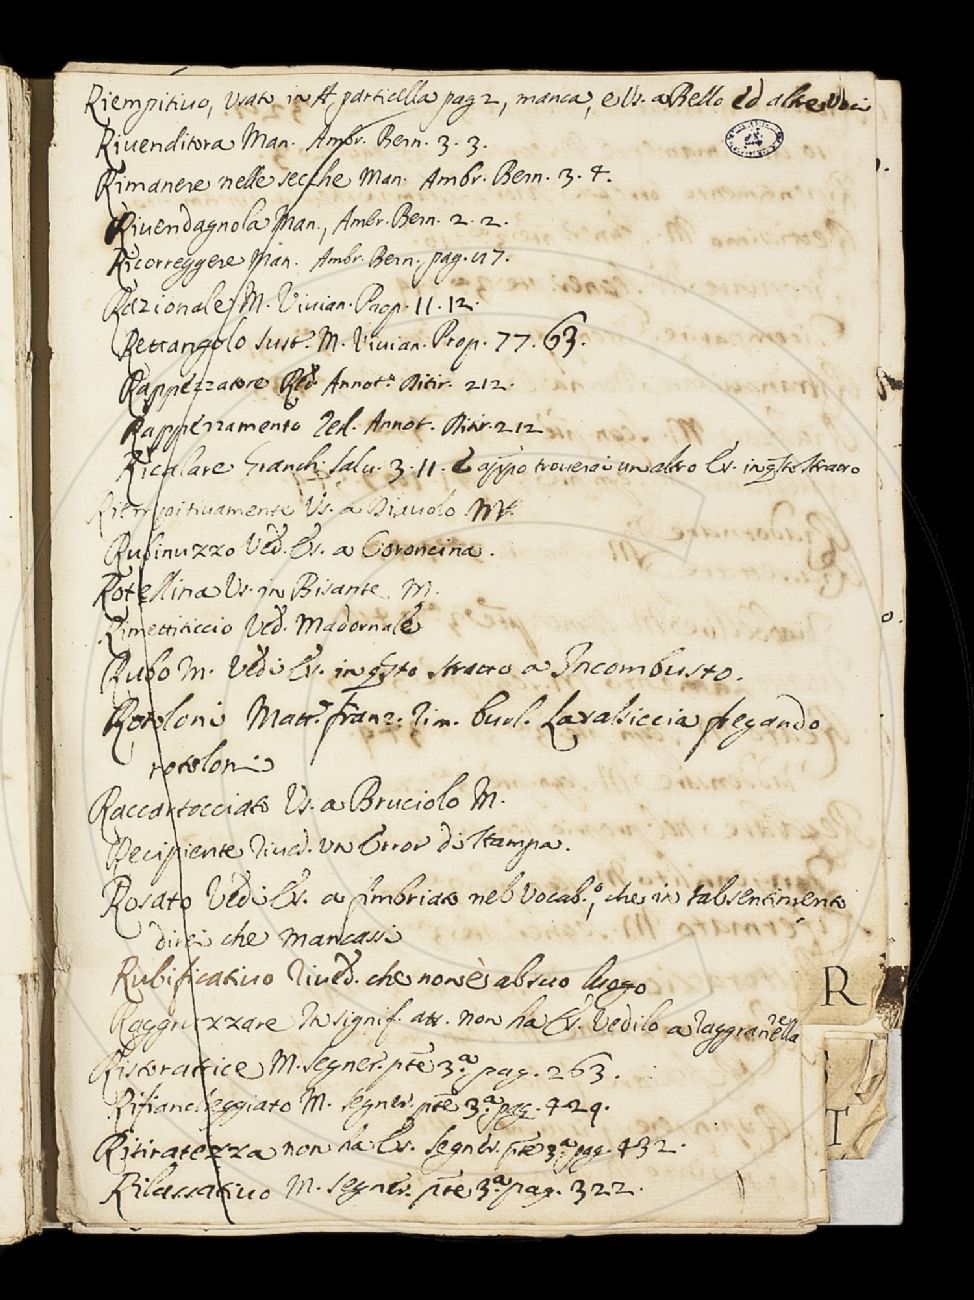 Riempitivo, usato in A, particella pag 2, manca, e Vs. a Bello ed altre voci
Rivenditora Man. Ambr. Bern. 3. 3.
Rimanere nelle secche Man. Ambr. Bern. 3. 4.
Rivendagnola Man., Ambr. Bern. 2. 2.
Ricorreggere Man. Ambr. Bern. pag. 117.
Razionale M. Vivian. Prop. 11. 12.
Rettangolo Sust.o M. Vivian. Prop. 77. 63.
Rappezzatore Red. Annot. Ditir. 212.
Rappezzamento Red. Annot. Ditir. 212
Ricalare Granch. Salv. 3. 11. e appo troverai un altro Es. in qsto stracco
Riempitivamente Vs. a M.
Rubinuzzo Ved. Es. a Coroncina.
Rotellina Vs. in Bisante. M.
Rimettiticcio Ved. Madornale
Rubo M. Vedi Es. in qsto stracco a Incombusto.
Rotoloni Matt. Franz. Rim. burl. La salsiccia piegando
rotoloni
Raccartocciato Vs. a Bruciolo M.
Recipiente Rived. un Error di Stampa.
Rosato Vedi Es. a fimbriato nel Vocab.o, che in tal sentimento
direi che mancassi
Rubificativo Rived. che non è al suo luogo
Raggruzzare In signif. att. non ha Es. Vedilo a raggranellare
Ristoratrice M. Segner. pte 3.a pag. 263.
Rifiancheggiato M. Segner. pte 3.a pag. 429.
Ritiratezza non ha Es. Segner. pte 3.a pag. 432.
Rilassativo M. Segner. pte 3.a pag. 322.
R
T